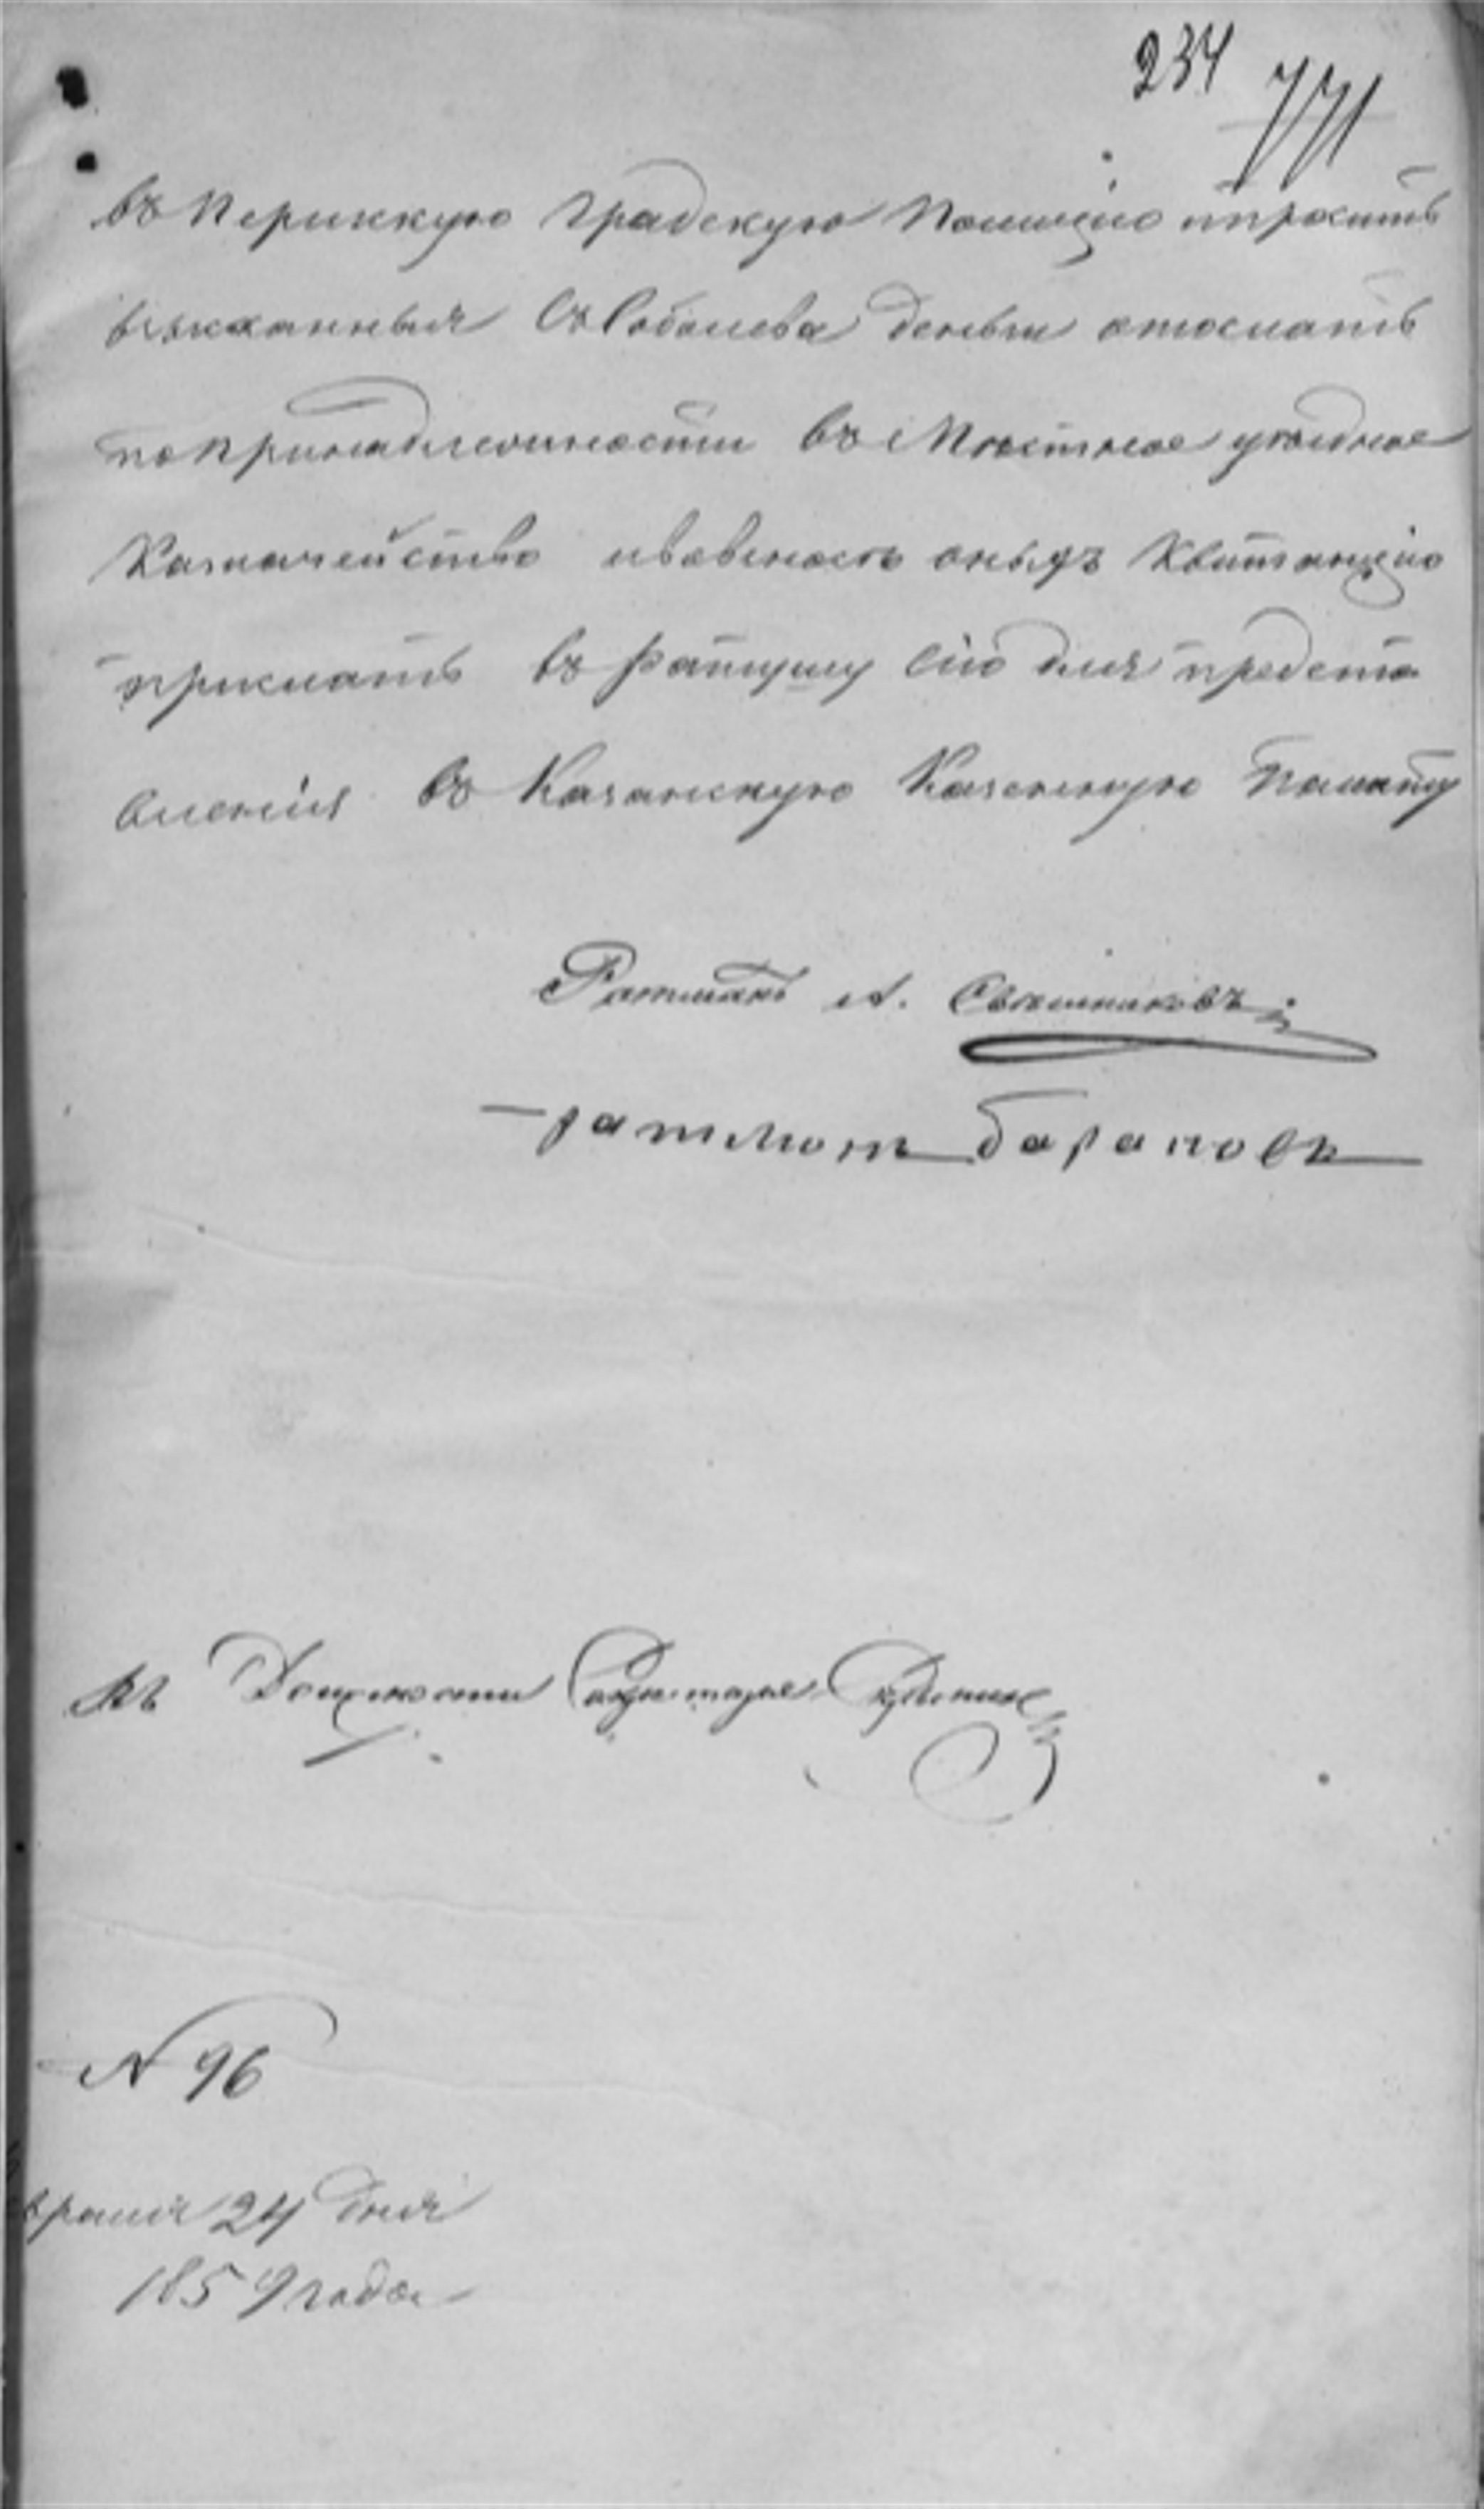 234
771
въ Пермскую Градскую Полицію просить
взысканныя съ Соболева деньги отослать
по принадлежности въ Мѣстное уѣздное
Казначейство и взносѣ оныхъ Квитанцію
прислать въ Ратушу сію для предста
вленія въ Казанскую Казенную Палату
Ратманъ А.
ратманъ барановъ
Въ Должности Секретаря
N 96
враля 24 дня
1859 года